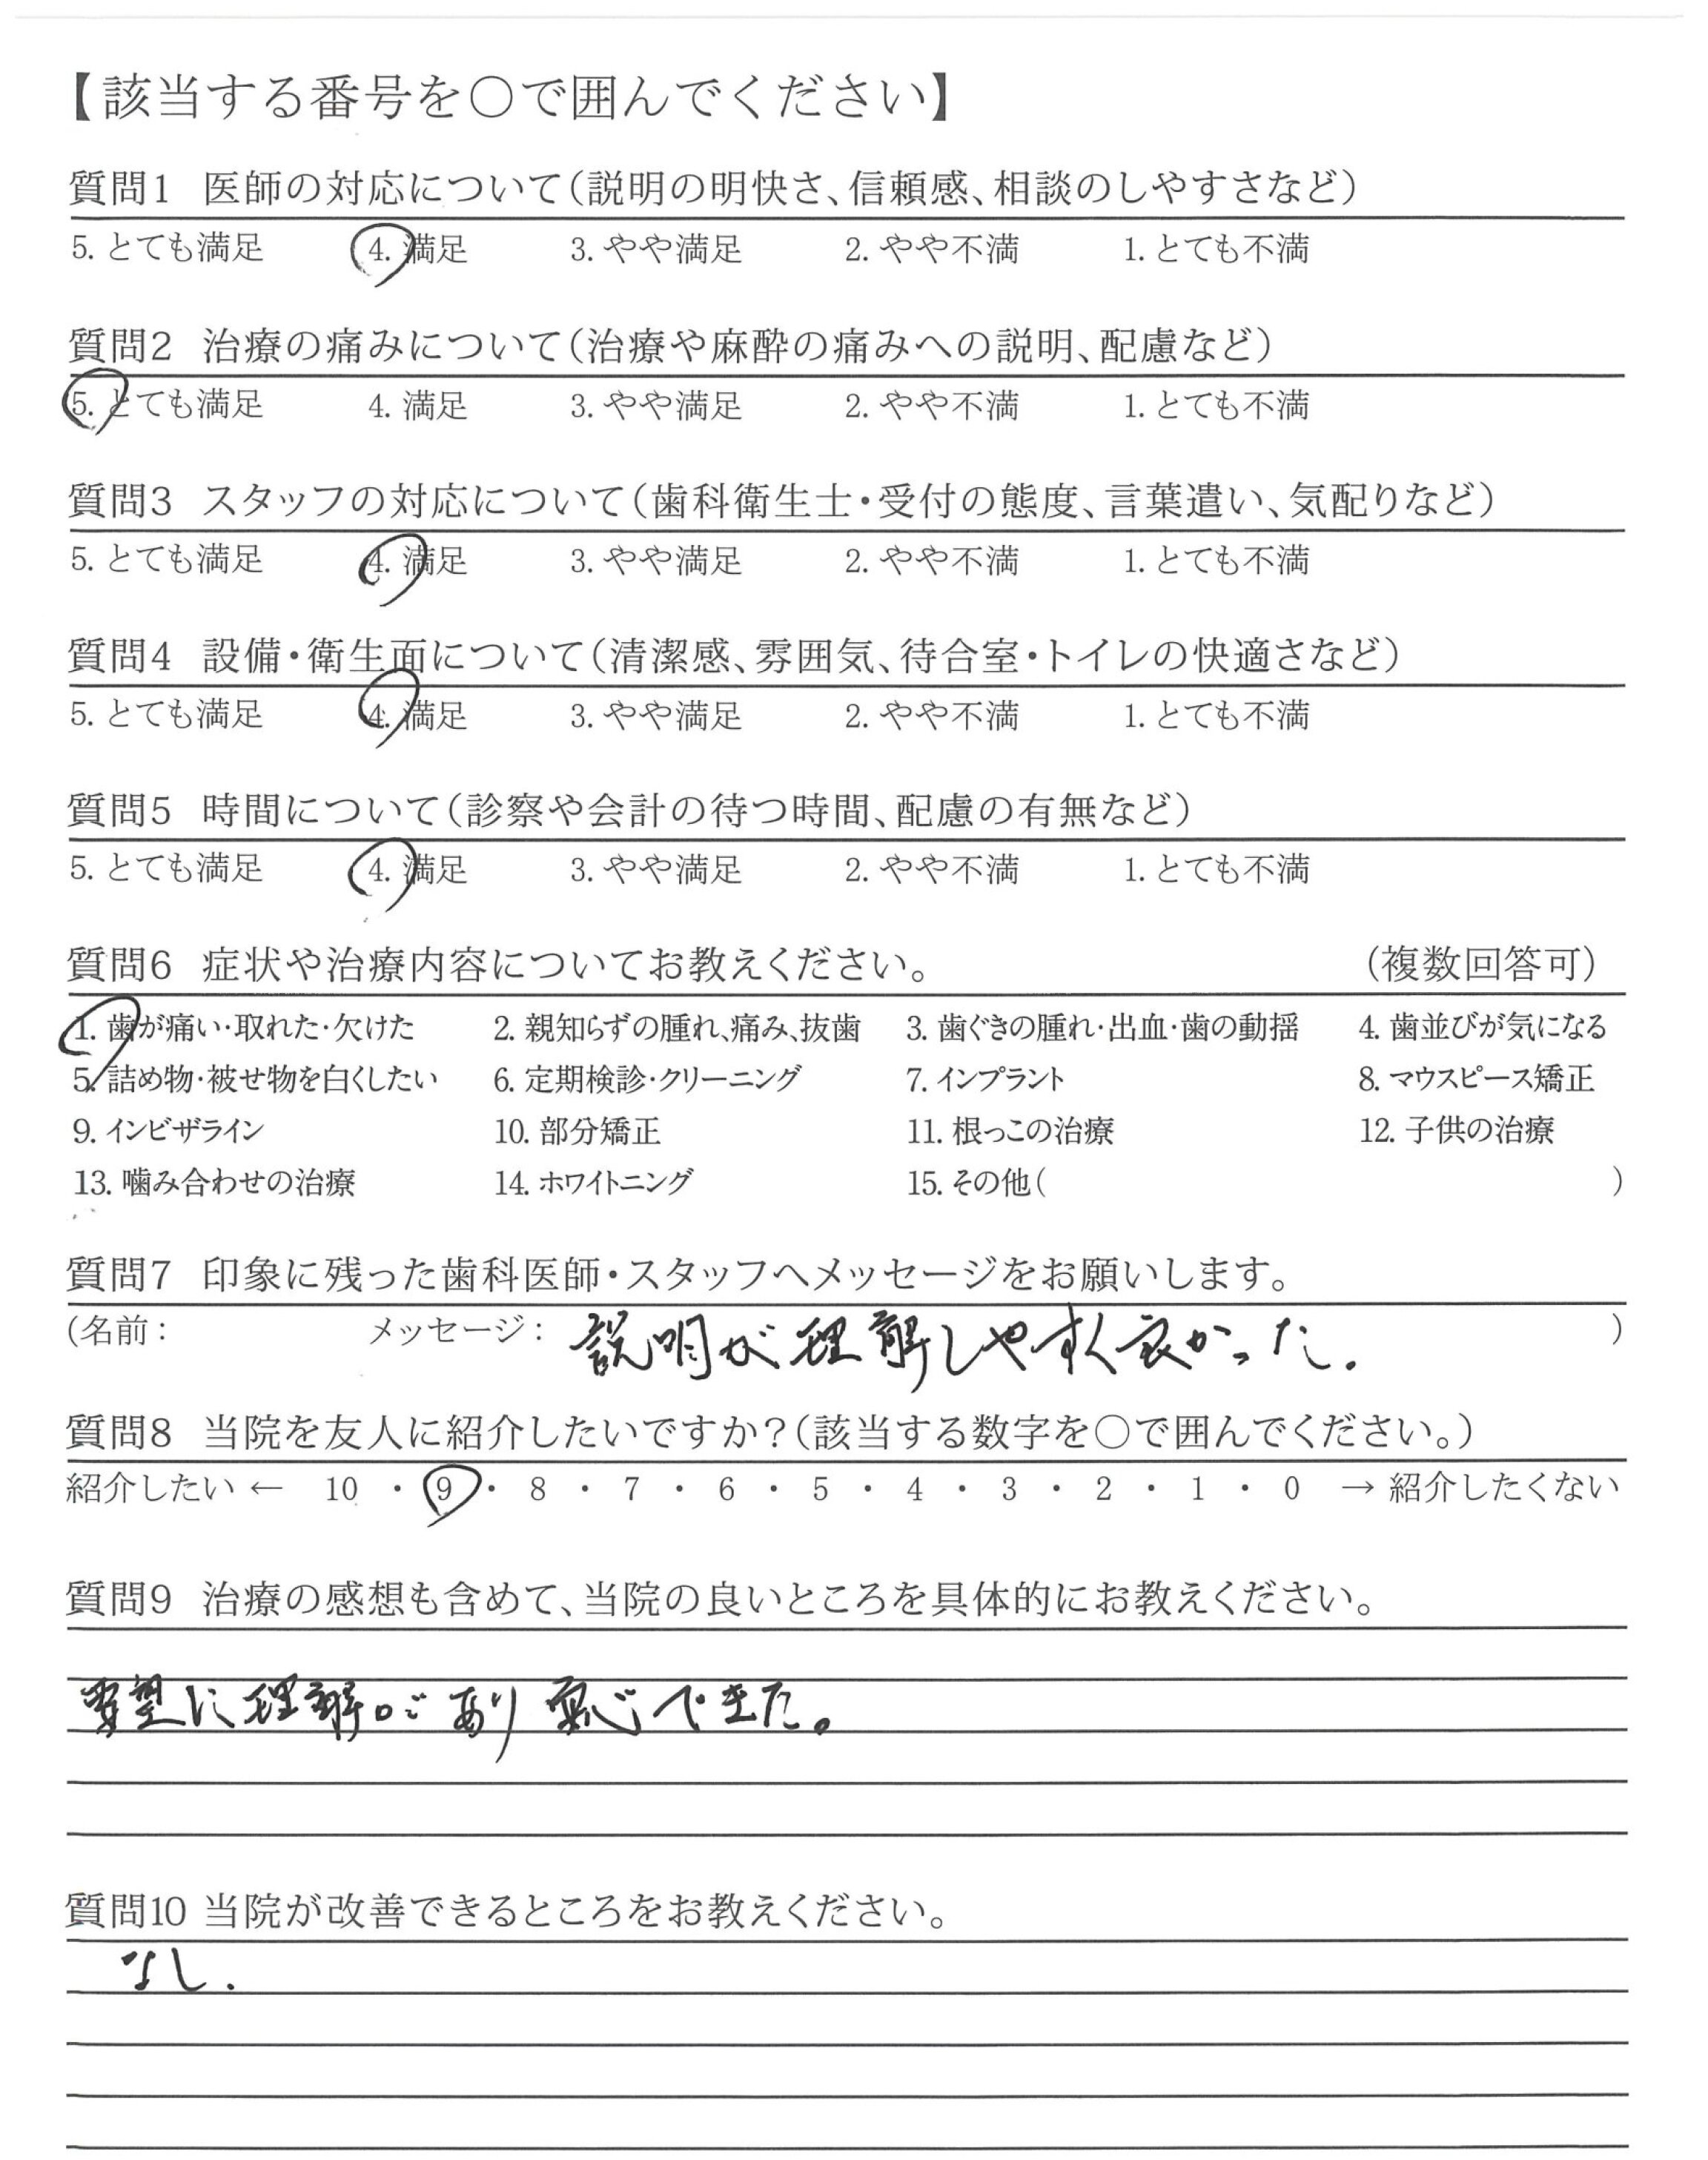 【該当する番号を○で囲んでください】
質問1 医師の対応について(説明の明快さ、信頼感、相談のしやすさなど)
5. とても満足 4. 満足 3. やや満足 2. やや不満 1. とても不満
質問2 治療の痛みについて(治療や麻酔の痛みへの説明、配慮など)
5. とても満足 4. 満足 3. やや満足 2. やや不満 1. とても不満
質問3 スタッフの対応について(歯科衛生士・受付の態度、言葉遣い、気配りなど)
5. とても満足 4. 満足 3. やや満足 2. やや不満 1. とても不満
質問4 設備・衛生面について(清潔感、雰囲気、待合室・トイレの快適さなど)
5. とても満足 4. 満足 3. やや満足 2. やや不満 1. とても不満
質問5 時間について(診察や会計の待つ時間、配慮の有無など)
5. とても満足 4. 満足 3. やや満足 2. やや不満 1. とても不満
質問6 症状や治療内容についてお教えください。 (複数回答可)
1. 歯が痛い・取れた・欠けた 2. 親知らずの腫れ、痛み、抜歯 3. 歯ぐきの腫れ・出血・歯の動揺 4. 歯並びが気になる
5. 詰め物・被せ物を白くしたい 6. 定期検診・クリーニング 7. インプラント 8. マウスピース矯正
9. インビザライン 10. 部分矯正 11. 根っこの治療 12. 子供の治療
13. 噛み合わせの治療 14. ホワイトニング 15. その他( )
質問7 印象に残った歯科医師・スタッフへメッセージをお願いします。
(名前: メッセージ: 説明が理解しやすく良かった. )
質問8 当院を友人に紹介したいですか?(該当する数字を○で囲んでください。)
紹介したい ← 10 ・ 9 ・ 8 ・ 7 ・ 6 ・ 5 ・ 4 ・ 3 ・ 2 ・ 1 ・ 0 → 紹介したくない
質問9 治療の感想も含めて、当院の良いところを具体的にお教えください。
要望に理解があり安心できた。
質問10 当院が改善できるところをお教えください。
なし.